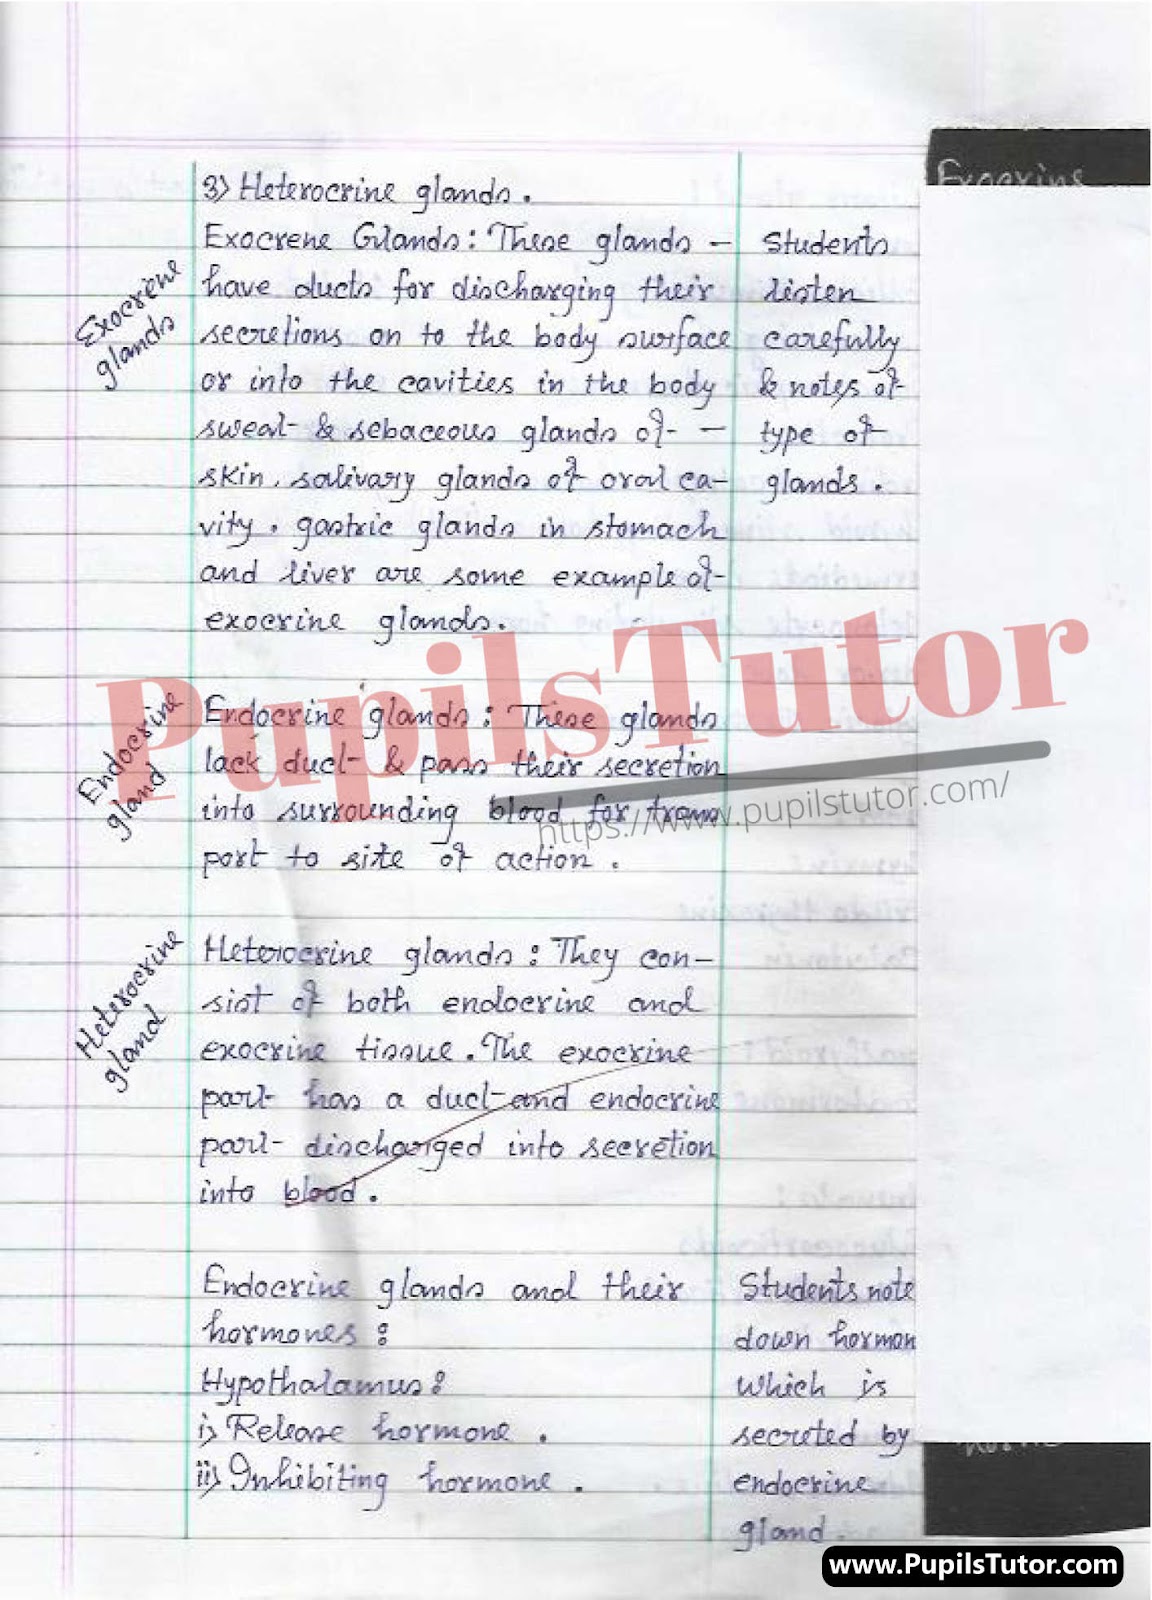 3) Heterocrine glands.
Exocrene Glands: These glands –
have ducts for discharging their
secretions on to the body surface
or into the cavities in the body
sweat & sebaceous glands of –
skin, salivary glands of oral ca–
vity. gastric glands in stomach
and liver are some example of
exocrine glands.
Exocrene
glands
Students
listen
carefully
& notes of
type of
glands.
Exocrine
Endocrine glands: These glands
lack duct & pass their secretion
into surrounding blood for trans
port to site of action.
Endocrine
gland
PupilsTutor
https://www.pupilstutor.com/
Heterocrine glands: They con–
sist of both endocrine and
exocrine tissue. The exocrine
part has a duct and endocrine
part discharged into secretion
into blood.
Heterocrine
gland
Endocrine glands and their
hormones:
Hypothalamus:
i) Release hormone.
ii) Inhibiting hormone.
Students note
down hormon
which is
secreted by
endocrine
gland.
www.PupilsTutor.com